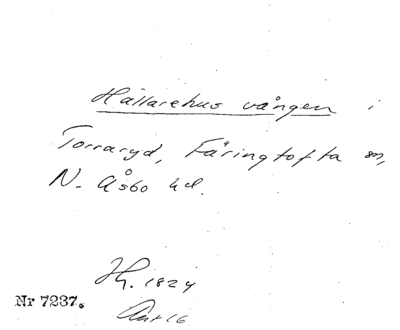 Hällarehus vången i
Torraryd, Färingtofta sn,
N. Åsbo hd.
Hg. 1824
Nr 7237.